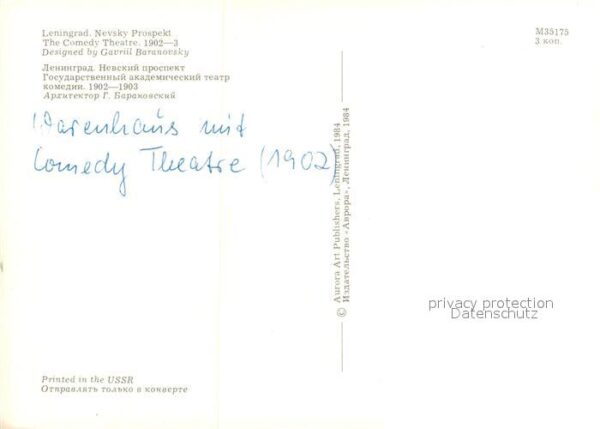 Leningrad. Nevsky Prospekt
The Comedy Theatre. 1902—3
Designed by Gavriil Baranovsky
Ленинград. Невский проспект
Государственный академический театр
комедии. 1902—1903
Архитектор Г. Барановский
Warenhaus mit
Comedy Theatre (1902)
M35175
3 коп.
© Aurora Art Publishers, Leningrad, 1984
Издательство «Аврора», Ленинград, 1984
privacy protection
Datenschutz
Printed in the USSR
Отправлять только в конверте